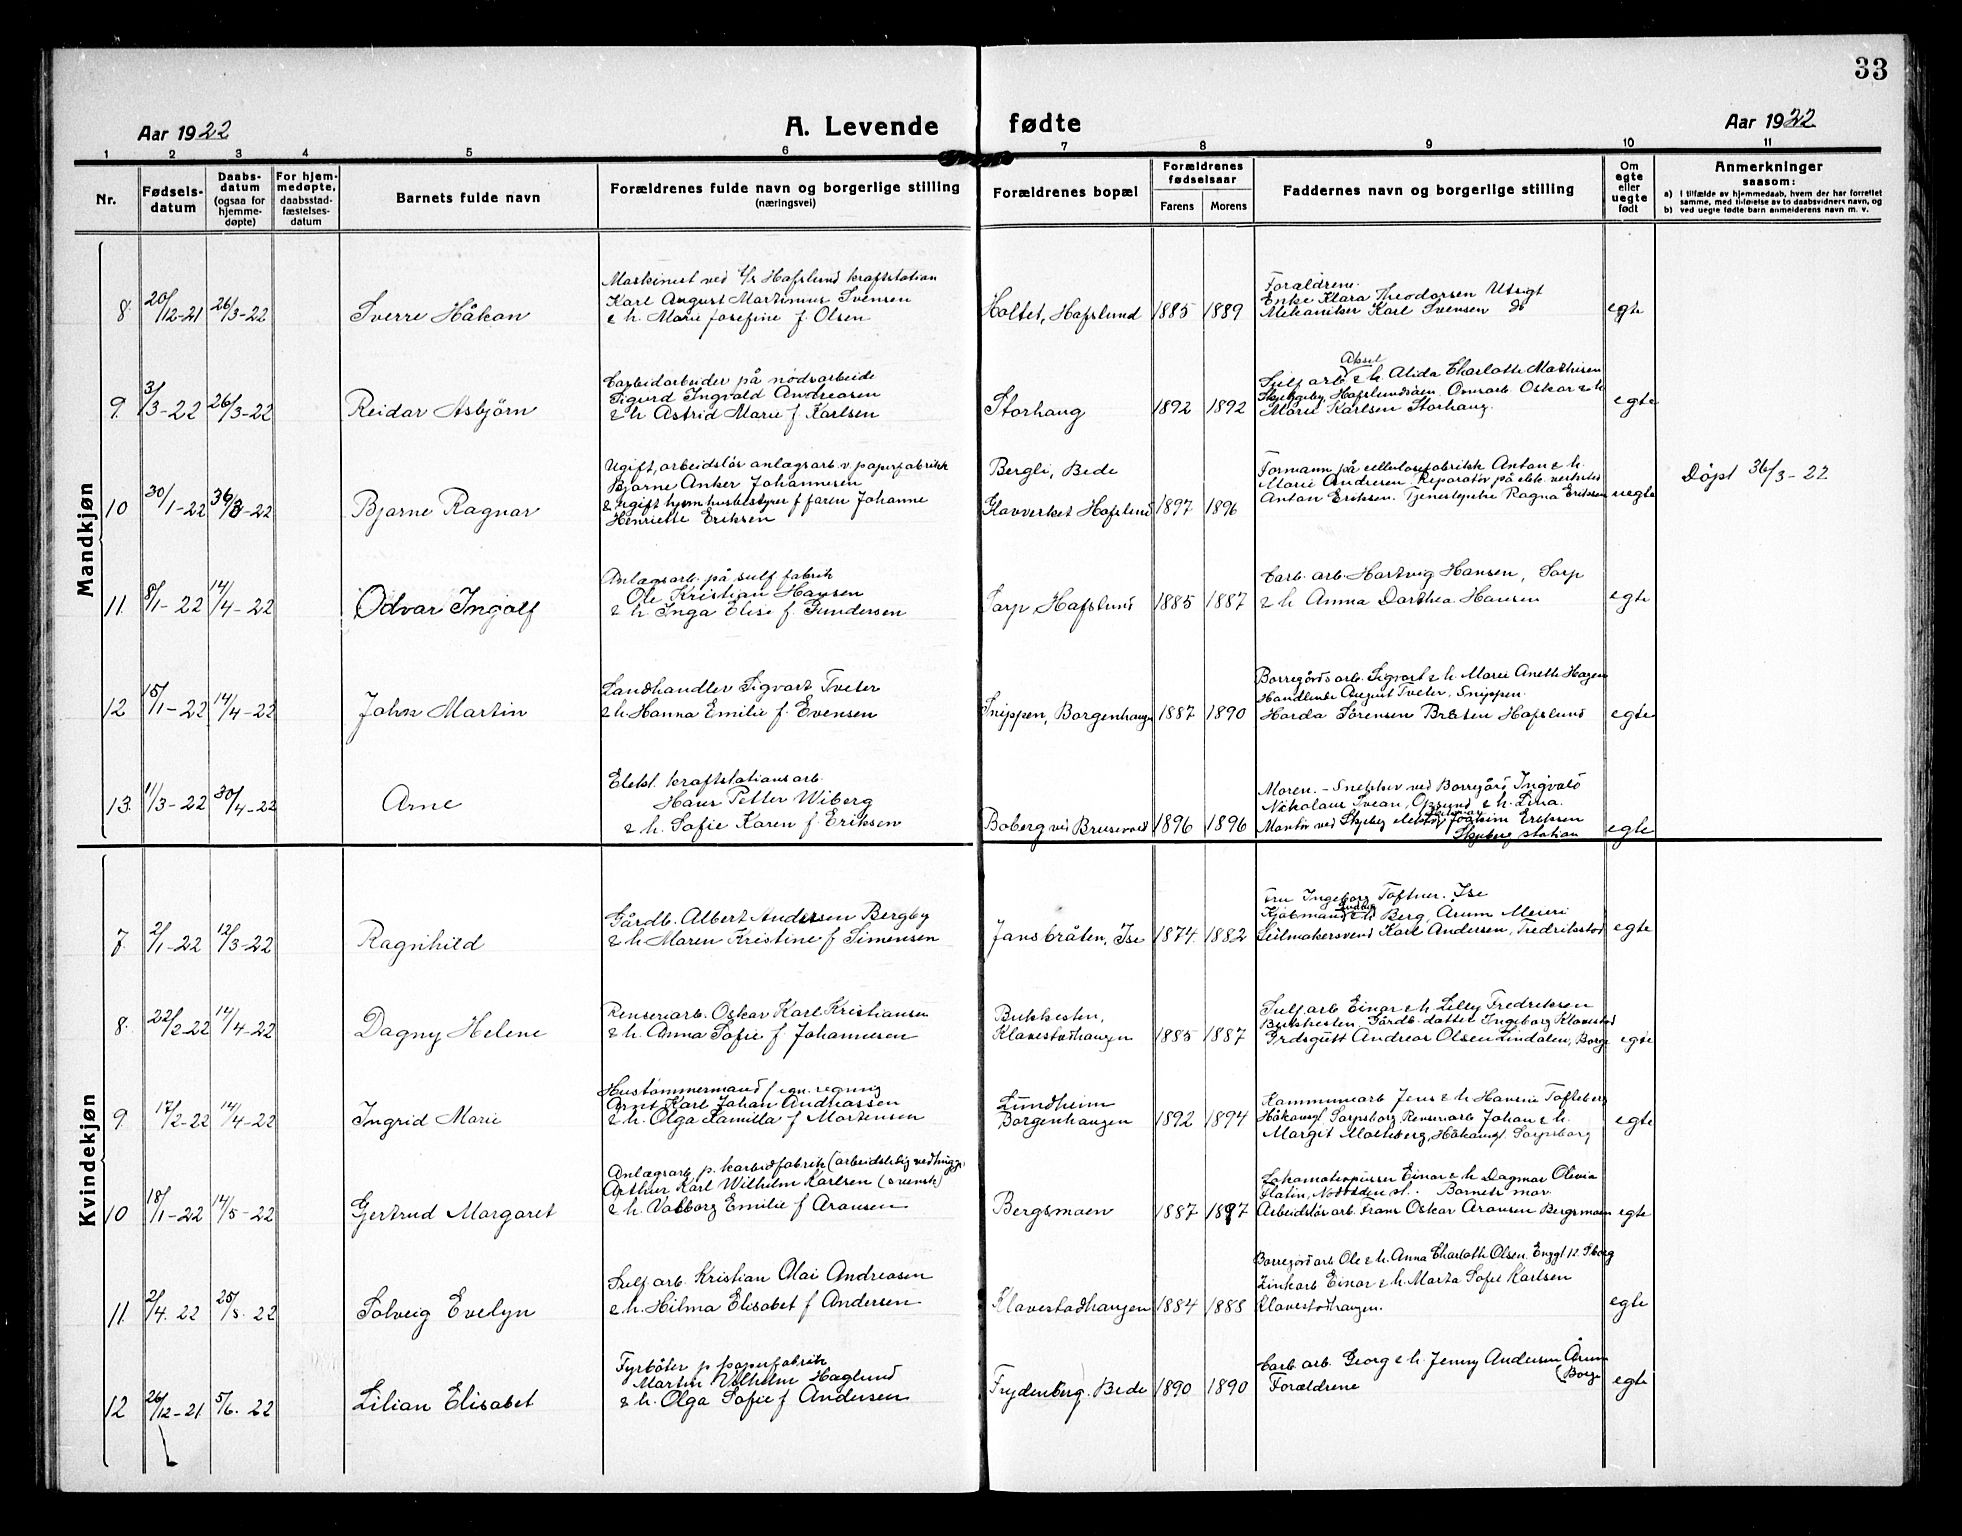 33
Aar 1922
A. Levende fødte
Aar 1922
1 2 3 4 5 6 7 8 9 10 11
Nr.
Fødsels-
datum
Daabs-
datum
(ogsaa for
hjemme-
døpte)
For hjem-
medøpte,
daabsstad-
fæstelses-
datum
Barnets fulde navn
Forældrenes fulde navn og borgerlige stilling
(næringsvei)
Forældrenes bopæl
Forældrenes
fødselsaar
Farens Morens
Faddernes navn og borgerlige stilling
Om
egte
eller
uegte
født
Anmerkninger
saasom:
a) I tilfælde av hjemmedaab, hvem der har forrettet
samme, med tilføielse av to daabsvidners navn, og
b) ved uegte fødte barn anmelderens navn m. v.
Mandkjøn
8 20/12-21 26/3-22
Sverre Håkon
Maskinist ved Hafslund kraftstation
Karl August Martinius Svensen
& h. Marie Josefine f. Olsen
Holtet, Hafslund
1885 1889
Forældrene.
Enke Klara Theodorsen Utsigt
Mekaniker Karl Svensen do
egte
9. 3/3-22 26/3-22
Reidar Asbjörn
Carbidarbeider på nödsarbeide
Sigurd Ingvald Andreasen
& h Astrid Marie f Karlsen
Storhaug
1892 1892
Aksel
Sulf arb & h. Alida Charlotte Mathisen
Skjebgeby, Hafslundsöen. Omr arb Oskar & h
Marie Karlsen Storhaug.
egte
10 30/1-22 -22
Bjarne Ragnar
Ugift, arbeidslös anlægsarb. v. papirfabrikk
Bjarne Anker Johannesen
& ugift hjem husbestyrer f faren Johanne
Henriette Eriksen
Bergli, Bede
Hafslund
1897 1896
Formann på cellulosefabrikk Anton & h.
Marie Andersen. Reparatör på elek. verksted
Anton Eriksen. Tjenestepike Ragna Eriksen
uegte
Döpt /3-22
11. 8/1-22 14/4-22
Odvar Ingolf
Anlægsarb. på sulf fabrik
Ole Kristian Hansen
& h. Inga Elise f. Gundersen
Sarp Hafslund
1885 1887
Carb. arb. Hartvig Hansen, Sarp
& h. Anna Dorthea Hansen
egte
12 15/1-22 14/4-22
John Martin
Landhandler Sigvart Tveter
& h. Hanna Emilie f. Evensen
Snippen, Borgenhaugen
1887 1890
Borregårds arb. Sigvart & h. Marie Anette Hagen
Handlende August Tveter, Snippen.
Harda Sørensen Bråten Hafslund
egte
13. 11/3-22 30/4-22
Arne
Elekt. kraftstationsarb.
Hans Petter Wiberg
& h. Sofie Karen f. Eriksen
Boberg ved Brusevold
1896 1896
Moren. - Snekker ved Borregård Ingvald
Nikolaus Svean, Opsund & h. Lina.
Montör ved Skjeberg Joakim Eriksen
Skjeberg station
egte
Kvindekjøn
7 2/1-22 12/3-22
Ragnhild
Gårdb. Albert Andersen Bergby
& h. Maren Kristine f Simensen
Jansbråten, Ise
1874. 1882
Fru Ingeborg Toftner. Ise
Kjöbmand & h Berg, Årum Meieri
Seilmakersvend Karl Andersen, Fredrikstad
egte
8. 22/2-22 14/4-22
Dagny Helene
Renseriarb. Oskar Karl Kristiansen
& h. Anna Sofie f Johannesen
Bukkesten,
Klavestadhaugen
1885 1887
Sulf. arb Einar & h. Lilly Fredriksen
Bukkesten, Gårdb. datter Ingeborg Klavestad
Grdsgutt Andreas Olsen Lindalen, Borge
egte
9 17/2-22 14/4-22
Ingrid Marie
Hustömmermand f egn. regning
Arnt Karl Johan Andreassen
& h. Olga Kamilla f Mortensen
Lundheim
Borgenhaugen
1892 1894
Kommunearb Jens & h Hansine Tofteberg
Håkonsgt Sarpsborg. Renseriarb Johan & h.
Margit Molteberg, Håkonsgt. Sarpsborg
egte
10 18/1-22 14/5-22
Gertrud Margaret
Anlægsarb p. karbidfabrik (arbeidsledig vedhugger)
Arthur Karl Wilhelm Karlsen (svensk)
& h. Valborg Emilie f Aronsen
Bergsmoen
1887 1897
Lokomotivpusser Einar & h Dagmar Olivia
Flatin, Notodden st. Barnets mor
Arbeidslös arb. Frans Oskar Aronsen Bergsmoen
egte
11. 2/4. 22 25/5. 22
Solveig Evelyn
Sulf arb. Kristian Olai Andreasen
& h. Hilma Elisabet f Andersen
Klavestadhaugen
1884 1888
Borregård arb Ole & h. Anna Charlotte Olsen. Enggt 12. Sborg
Zinkarb Einar & h. Marta Sofie Karlsen
Klavestadhaugen.
egte
12 26/12-21 5/6. 22
Lilian Elisabet
Fyrböter p papirfabrik
Martin Vilhelm Haglund
& h. Olga Sofie f Andersen
Frydenberg. Bede
1890 1890
Carb arb. Georg & h. Jenny Andersen Årum
(Borge
Forældrene
egte